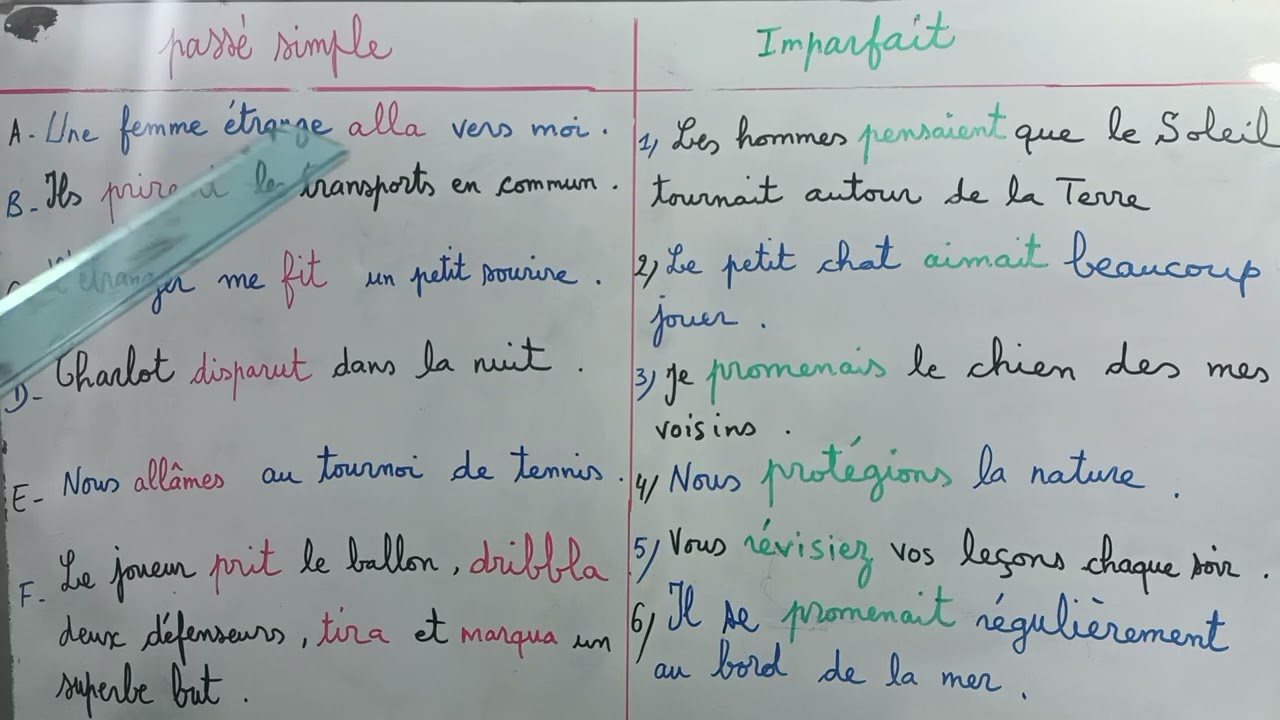 passé simple
A. Une femme étrange alla vers moi.
B. Ils les transports en commun.
me fit un petit sourire.
D- Charlot disparut dans la nuit.
E- Nous allâmes au tournoi de tennis.
F. Le joueur prit le ballon, dribbla
deux défenseurs, tira et marqua un
superbe but.
Imparfait
1) Les hommes pensaient que le Soleil
tournait autour de la Terre
2) Le petit chat aimait beaucoup
jouer.
3) Je promenais le chien des mes
voisins.
4) Nous protégions la nature.
5) Vous révisiez vos leçons chaque soir.
6) Il se promenait régulièrement
au bord de la mer.